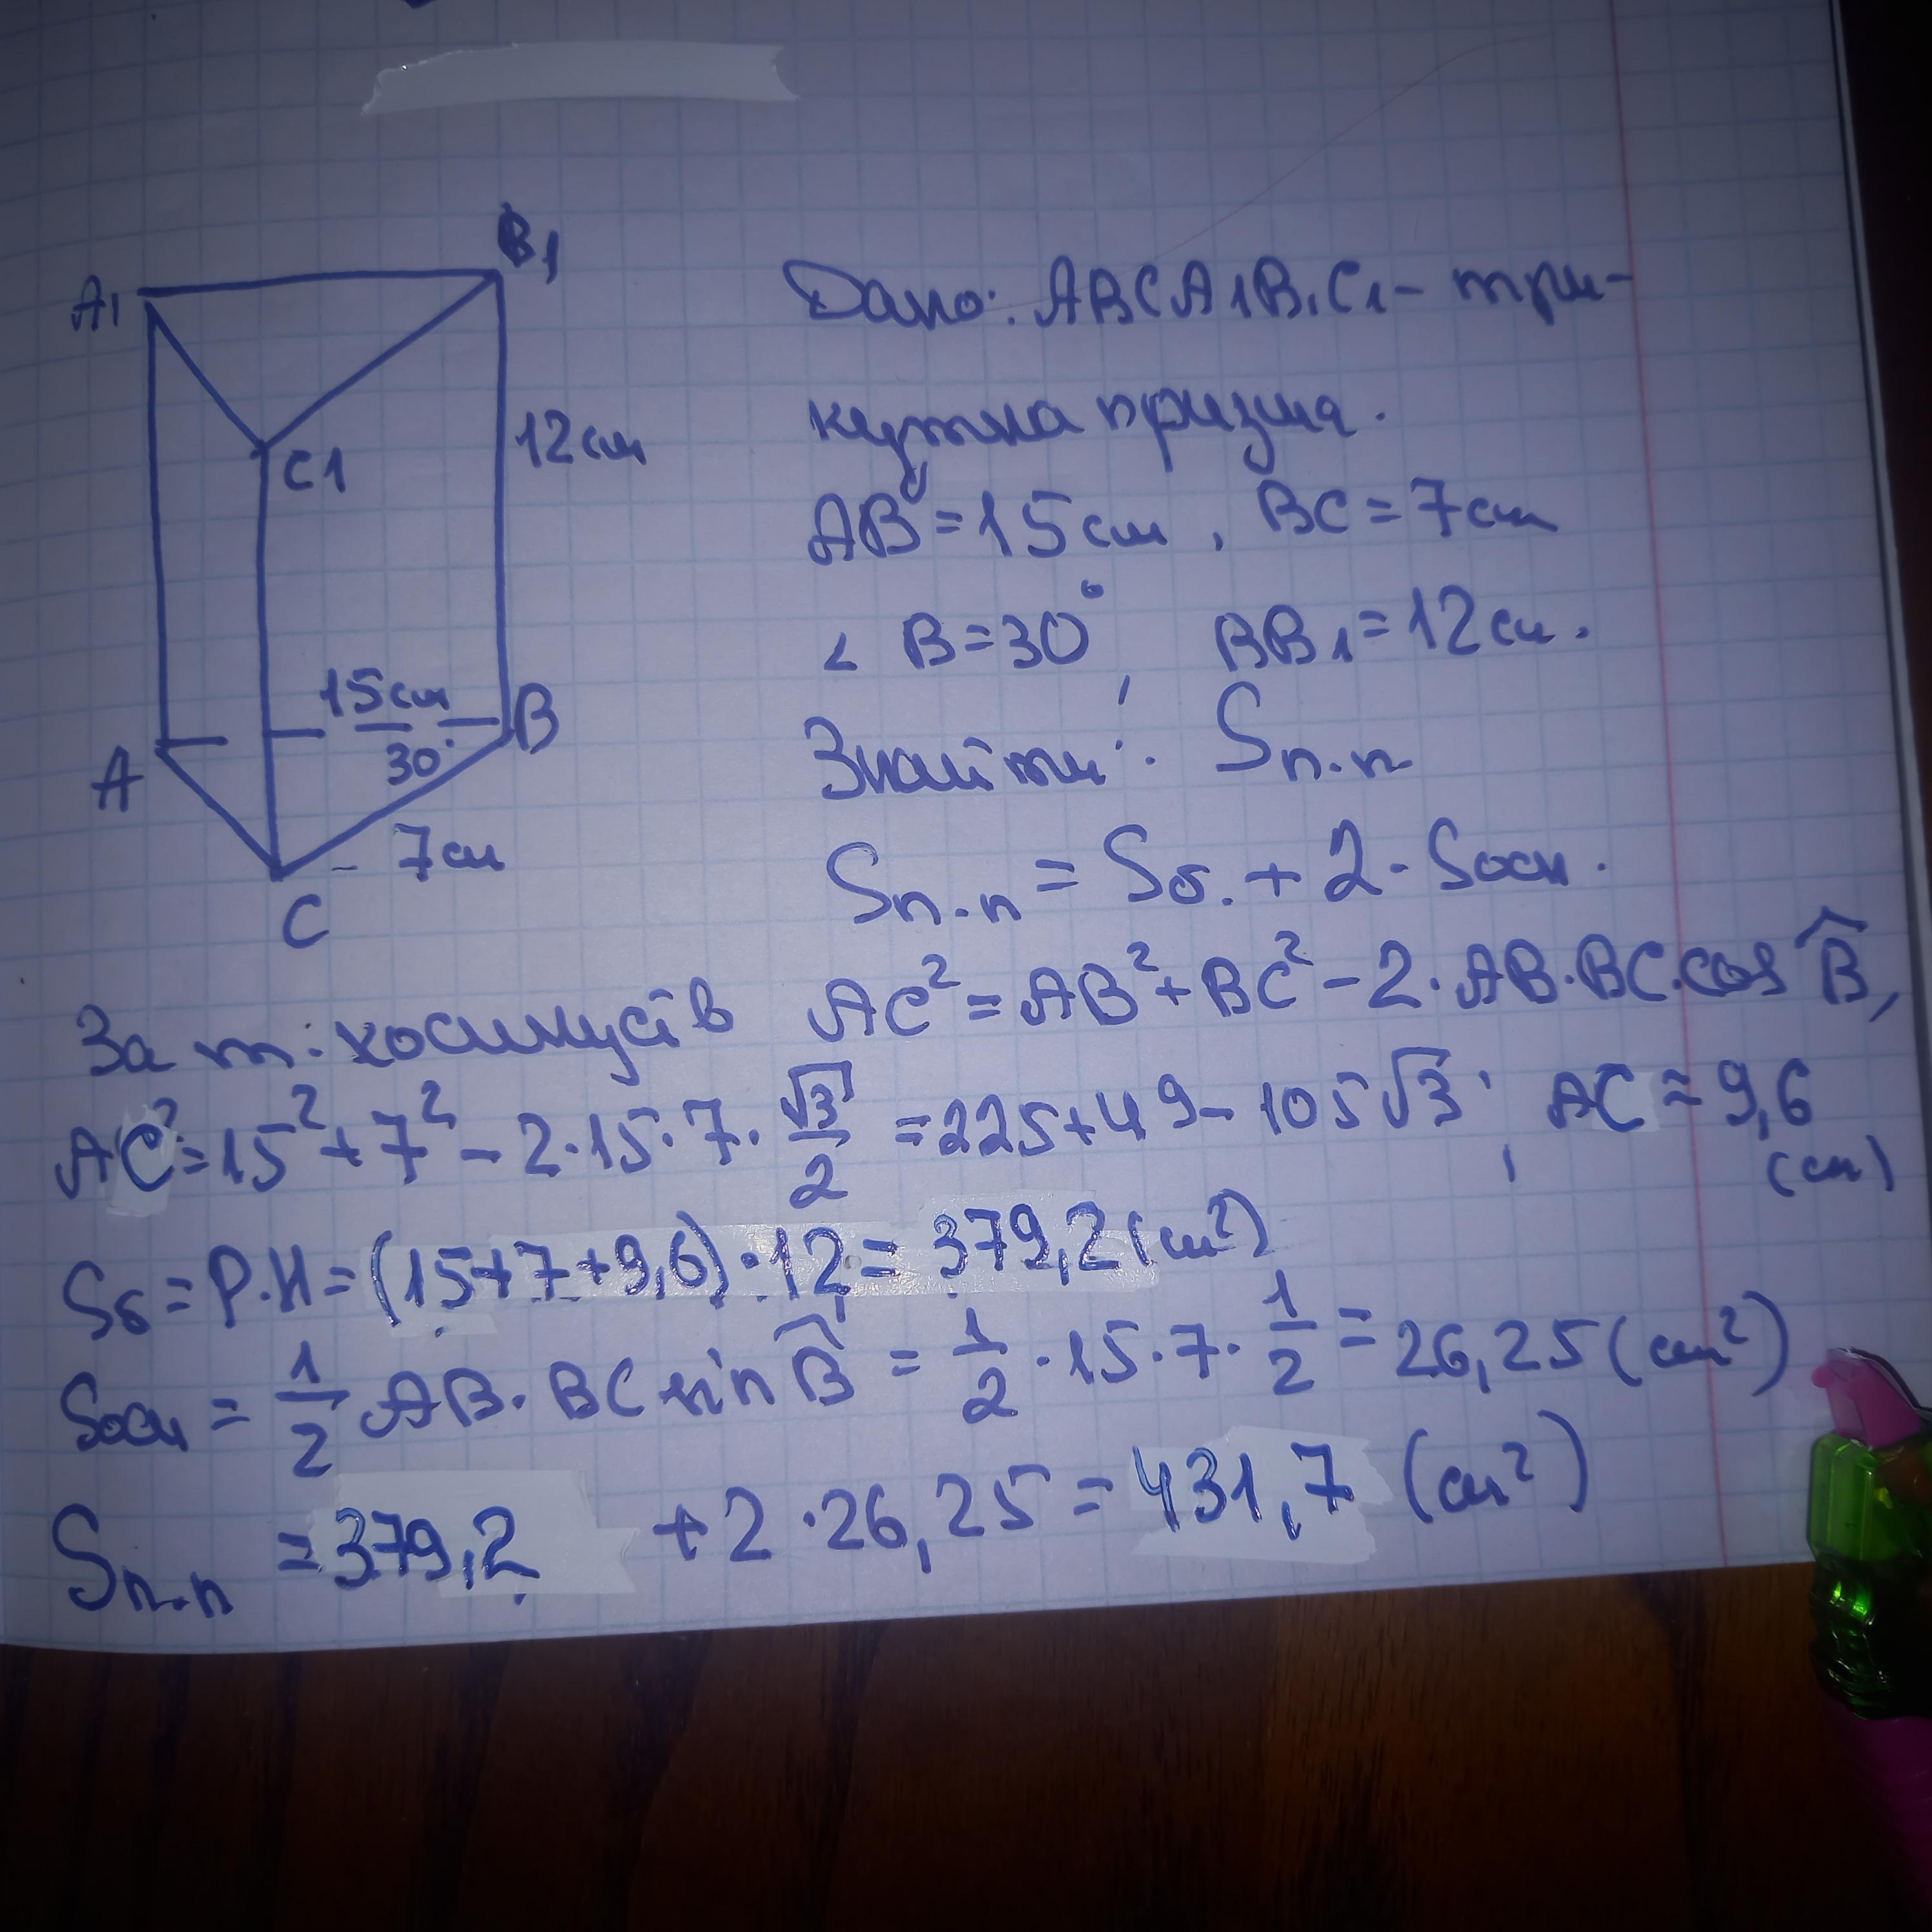 A1
B1
C1
12см
15см
30°
A
B
7см
C
Дано: ABCA1B1C1 - три-
кутна призма.
AB = 15см, BC = 7см
∠ B = 30°, BB1 = 12см.
Знайти: Sп.п
Sп.п = Sб. + 2 · Sосн.
За т. косинусів AC² = AB² + BC² - 2 · AB · BC · cos B̂,
AC² = 15² + 7² - 2 · 15 · 7 · √3/2 = 225 + 49 - 105√3, AC ≈ 9,6
(см)
Sб = P · H = (15+7+9,6) · 12 = 379,2 (см²)
Sосн = 1/2 AB · BC sin B̂ = 1/2 · 15 · 7 · 1/2 = 26,25 (см²)
Sп.п = 379,2 + 2 · 26,25 = 431,7 (см²)